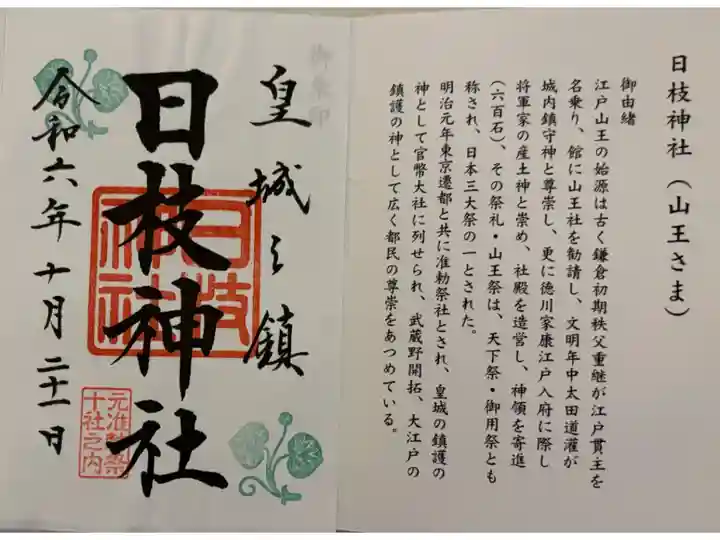 日枝神社(山王さま)
御由緒
江戸山王の始源は古く鎌倉初期秩父重継が江戸貫主を
名乗り、館に山王社を勧請し、文明年中太田道灌が
城内鎮守神と尊崇し、更に徳川家康江戸入府に際し
将軍家の産土神と崇め、社殿を造営し、神領を寄進
(六百石)、その祭礼・山王祭は、天下祭・御用祭とも
称され、日本三大祭の一とされた。
明治元年東京遷都と共に准勅祭社とされ、皇城の鎮護の
神として官幣大社に列せられ、武蔵野開拓、大江戸の
鎮護の神として広く都民の尊崇をあつめている。
皇城之鎮
日枝神社
日枝
神社
令和六年十月二十一日
元准勅祭
十社之内